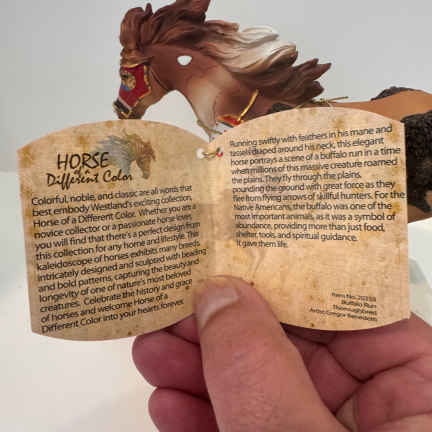 HORSE
of a
Different Color
Colorful, noble, and classic are all words that
best embody Westland's exciting collection,
Horse of a Different Color. Whether you are a
novice collector or a passionate horse lover,
you will find that there's a perfect design from
this collection for any home and lifestyle. This
kaleidoscope of horses exhibits many breeds,
intricately designed and sculpted with beading
and bold patterns, capturing the beauty and
longevity of one of nature's most beloved
creatures. Celebrate the history and grace
of horses and welcome Horse of a
Different Color into your hearts forever.
Running swiftly with feathers in his mane and
tassels draped around his neck, this elegant
horse portrays a scene of a buffalo run in a time
when millions of this massive creature roamed
the plains. They fly through the plains,
pounding the ground with great force as they
flee from flying arrows of skillful hunters. For the
Native Americans, the buffalo was one of the
most important animals, as it was a symbol of
abundance, providing more than just food,
shelter, tools, and spiritual guidance.
It gave them life.
Item No. 20358
Buffalo Run
Thoroughbred
Artist: Gregor Benedicto